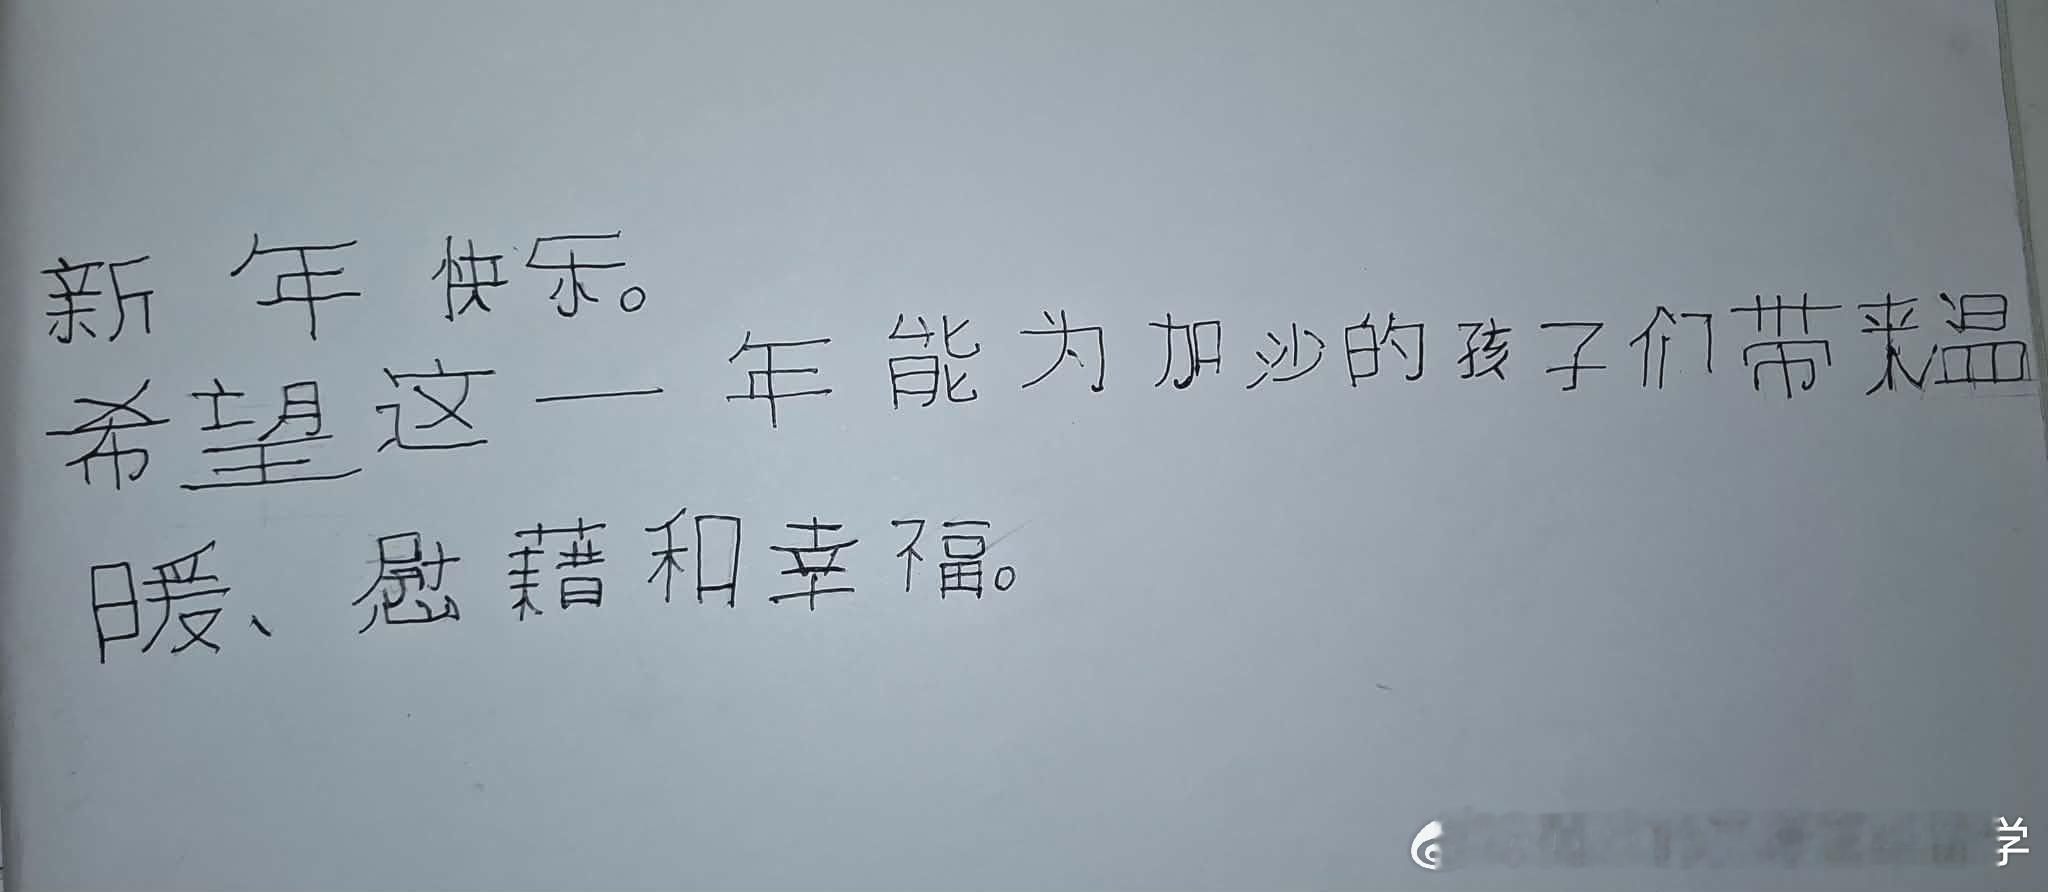 新年快乐。
希望这一年能为加沙的孩子们带来温
暖、慰藉和幸福。
学